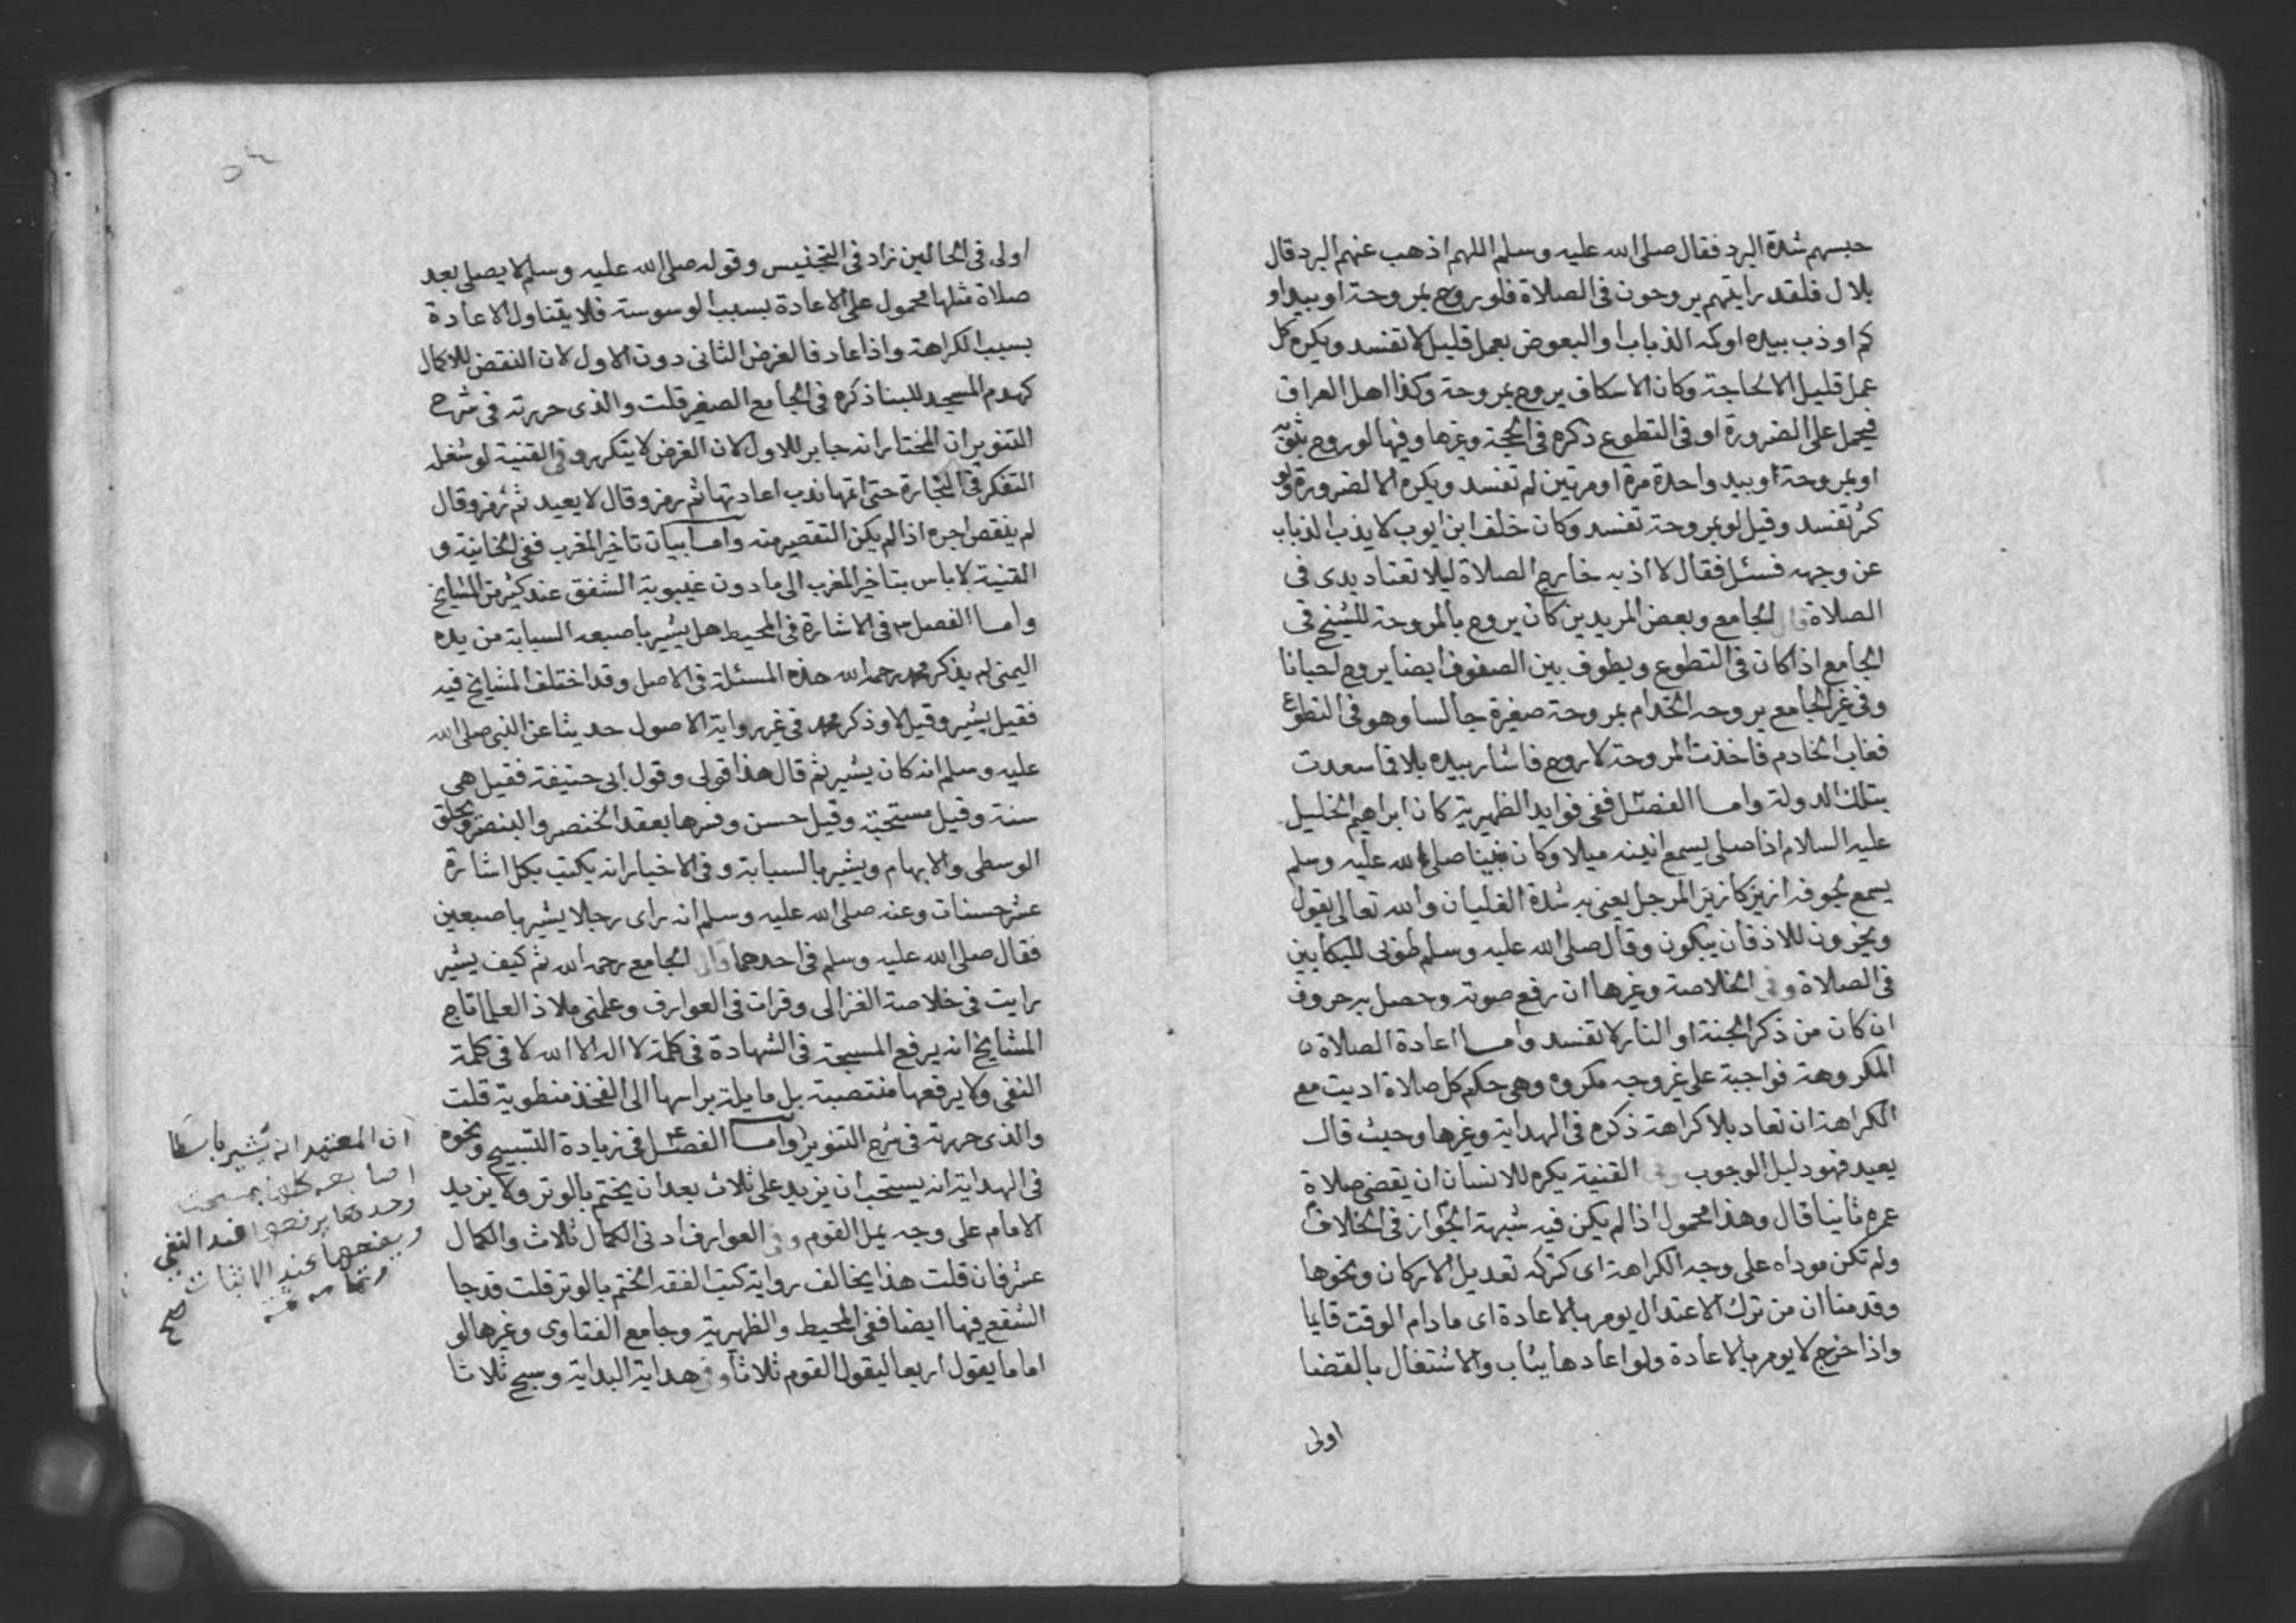 حبسهم شدة البرد فقال صلى الله عليه وسلم اللهم اذهب عنهم البرد قال
بلال فلقد رايتهم يروحون فى الصلاة فلو روح بمروحة او بيد او
كم او ذب بيده او كمه الذباب او البعوض بعمل قليل لا تفسد ويكره كل
عمل قليل الا لحاجة وكان الاسكاف يروح بمروحة وكذا اهل العراق
فيحمل على الضرورة او فى التطوع ذكره فى الحجة وغيرها وفيها لو روح بثوبه
او بمروحة او بيد واحدة مرة او مرتين لم تفسد ويكره الا لضرورة ولو
كثر تفسد وقيل لو بمروحة تفسد وكان خلف ابن ايوب لا يذب الذباب
عن وجهه فسئل فقال لا اذبه خارج الصلاة ليلا تعتاد يدى فى
الصلاة قال الجامع وبعض المريدين كان يروح بالمروحة للشيخ فى
الجامع اذا كان فى التطوع ويطوف بين الصفوف ايضا يروح احيانا
وفى غير الجامع يروحه الخدام بمروحة صغيرة جالسا وهو فى التطوع
فغاب الخادم فاخذت المروحة لاروح فاشار بيده بلا فما سعدت
بتلك الدولة واما الفصل ففى فوايد الظهيرية كان ابراهيم الخليل
عليه السلام اذا صلى يسمع انينه ميلا وكان نبينا صلى الله عليه وسلم
يسمع لجوفه ازيز كازيز المرجل يعنى به شدة الغليان والله تعالى يقول
ويخرون للاذقان يبكون وقال صلى الله عليه وسلم طوبى للبكايين
فى الصلاة وفى الخلاصة وغيرها ان رفع صوته وحصل به حروف
ان كان من ذكر الجنة او النار لا تفسد واما اعادة الصلاة
المكروهة فواجبة على غير وجه مكروه وهى حكم كل صلاة اديت مع
الكراهة ان تعاد بلا كراهة ذكره فى الهداية وغيرها وحيث قال
يعيد فهو دليل الوجوب وفى القنية يكره للانسان ان يقضى صلاة
عمره ثانيا قال وهذا محمول اذا لم يكن فيه شبهة الجواز فى الخلاف
ولم تكن موداه على وجه الكراهة اى كتركه تعديل الاركان ونحوها
وقدمنا ان من ترك الاعتدال يومر بالاعادة اى ما دام الوقت قايما
واذا خرج لا يومر بالاعادة ولو اعادها يثاب والاشتغال بالقضا
اولى
اولى فى الحالين زاد فى التجنيس وقوله صلى الله عليه وسلم لا يصلى بعد
صلاة مثلها محمول على الاعادة بسبب الوسوسة فلا يتناول الاعادة
بسبب الكراهة واذا عاد فالفرض الثانى دون الاول لان النقض للاكمال
كهدم المسجد للبنا ذكره فى الجامع الصغير قلت والذى حررته فى شرح
التنوير ان المختار انه جابر للاول لان الفرض لا يتكرر وفى القنية لو شغله
التفكر فى التجارة حتى اتمها ندب اعادتها ثم رمز وقال لا يعيد ثم رمز وقال
لم ينقص اجره اذا لم يكن التقصير منه واما بيان تاخير المغرب ففى الخانية و
القنية لا باس بتاخير المغرب الى ما دون غيبوبة الشفق عند كثير من المشايخ
واما الفصل فى الاشارة فى المحيط هل يشير باصبعه السبابة من يده
اليمنى لم يذكر محمد رحمه الله هذه المسئلة فى الاصل وقد اختلف المشايخ فيه
فقيل يشير وقيل لا وذكر محمد فى غير رواية الاصول حديثا عن النبى صلى الله
عليه وسلم انه كان يشير ثم قال هذا قولى وقول ابى حنيفة فقيل هى
سنة وقيل مستحبة وقيل حسن وفسرها بعقد الخنصر والبنصر ويحلق
الوسطى والابهام ويشير بالسبابة وفى الاخبار انه يكتب بكل اشارة
عشر حسنات وعنه صلى الله عليه وسلم انه راى رجلا يشير باصبعين
فقال صلى الله عليه وسلم فى احدهما قال الجامع رحمه الله ثم كيف يشير
رايت فى خلاصة الغزالى وقرات فى العوارف وعلمنى ملاذ العلما تاج
المشايخ انه يرفع المسبحة فى الشهادة فى كلمة لا اله الا الله لا فى كلمة
النفى ولا يرفعها منتصبة بل مايلة براسها الى الفخذ منطوية قلت
والذى حررته فى شرح التنوير واما الفصل فى زيادة التسبيح ونحوه
فى الهداية انه يستحب ان يزيد على ثلاث بعد ان يختم بالوتر ولا يزيد
الامام على وجه يمل القوم وفى العوارف ادنى الكمال ثلاث والكمال
عشر فان قلت هذا يخالف رواية كتب الفقه الختم بالوتر قلت قد جا
الشفع فيها ايضا ففى المحيط والظهيرية وجامع الفتاوى وغيرها لو
اماما يقول اربعا ليقول القوم ثلاثا وفى هداية البداية وسبح ثلاثا
ان المعتمد انه يشير باسطا
اصابعه كلها بمسبحته
وحدها يرفعها عند النفى
ويضعها عند الاثبات
وتمامه
صح